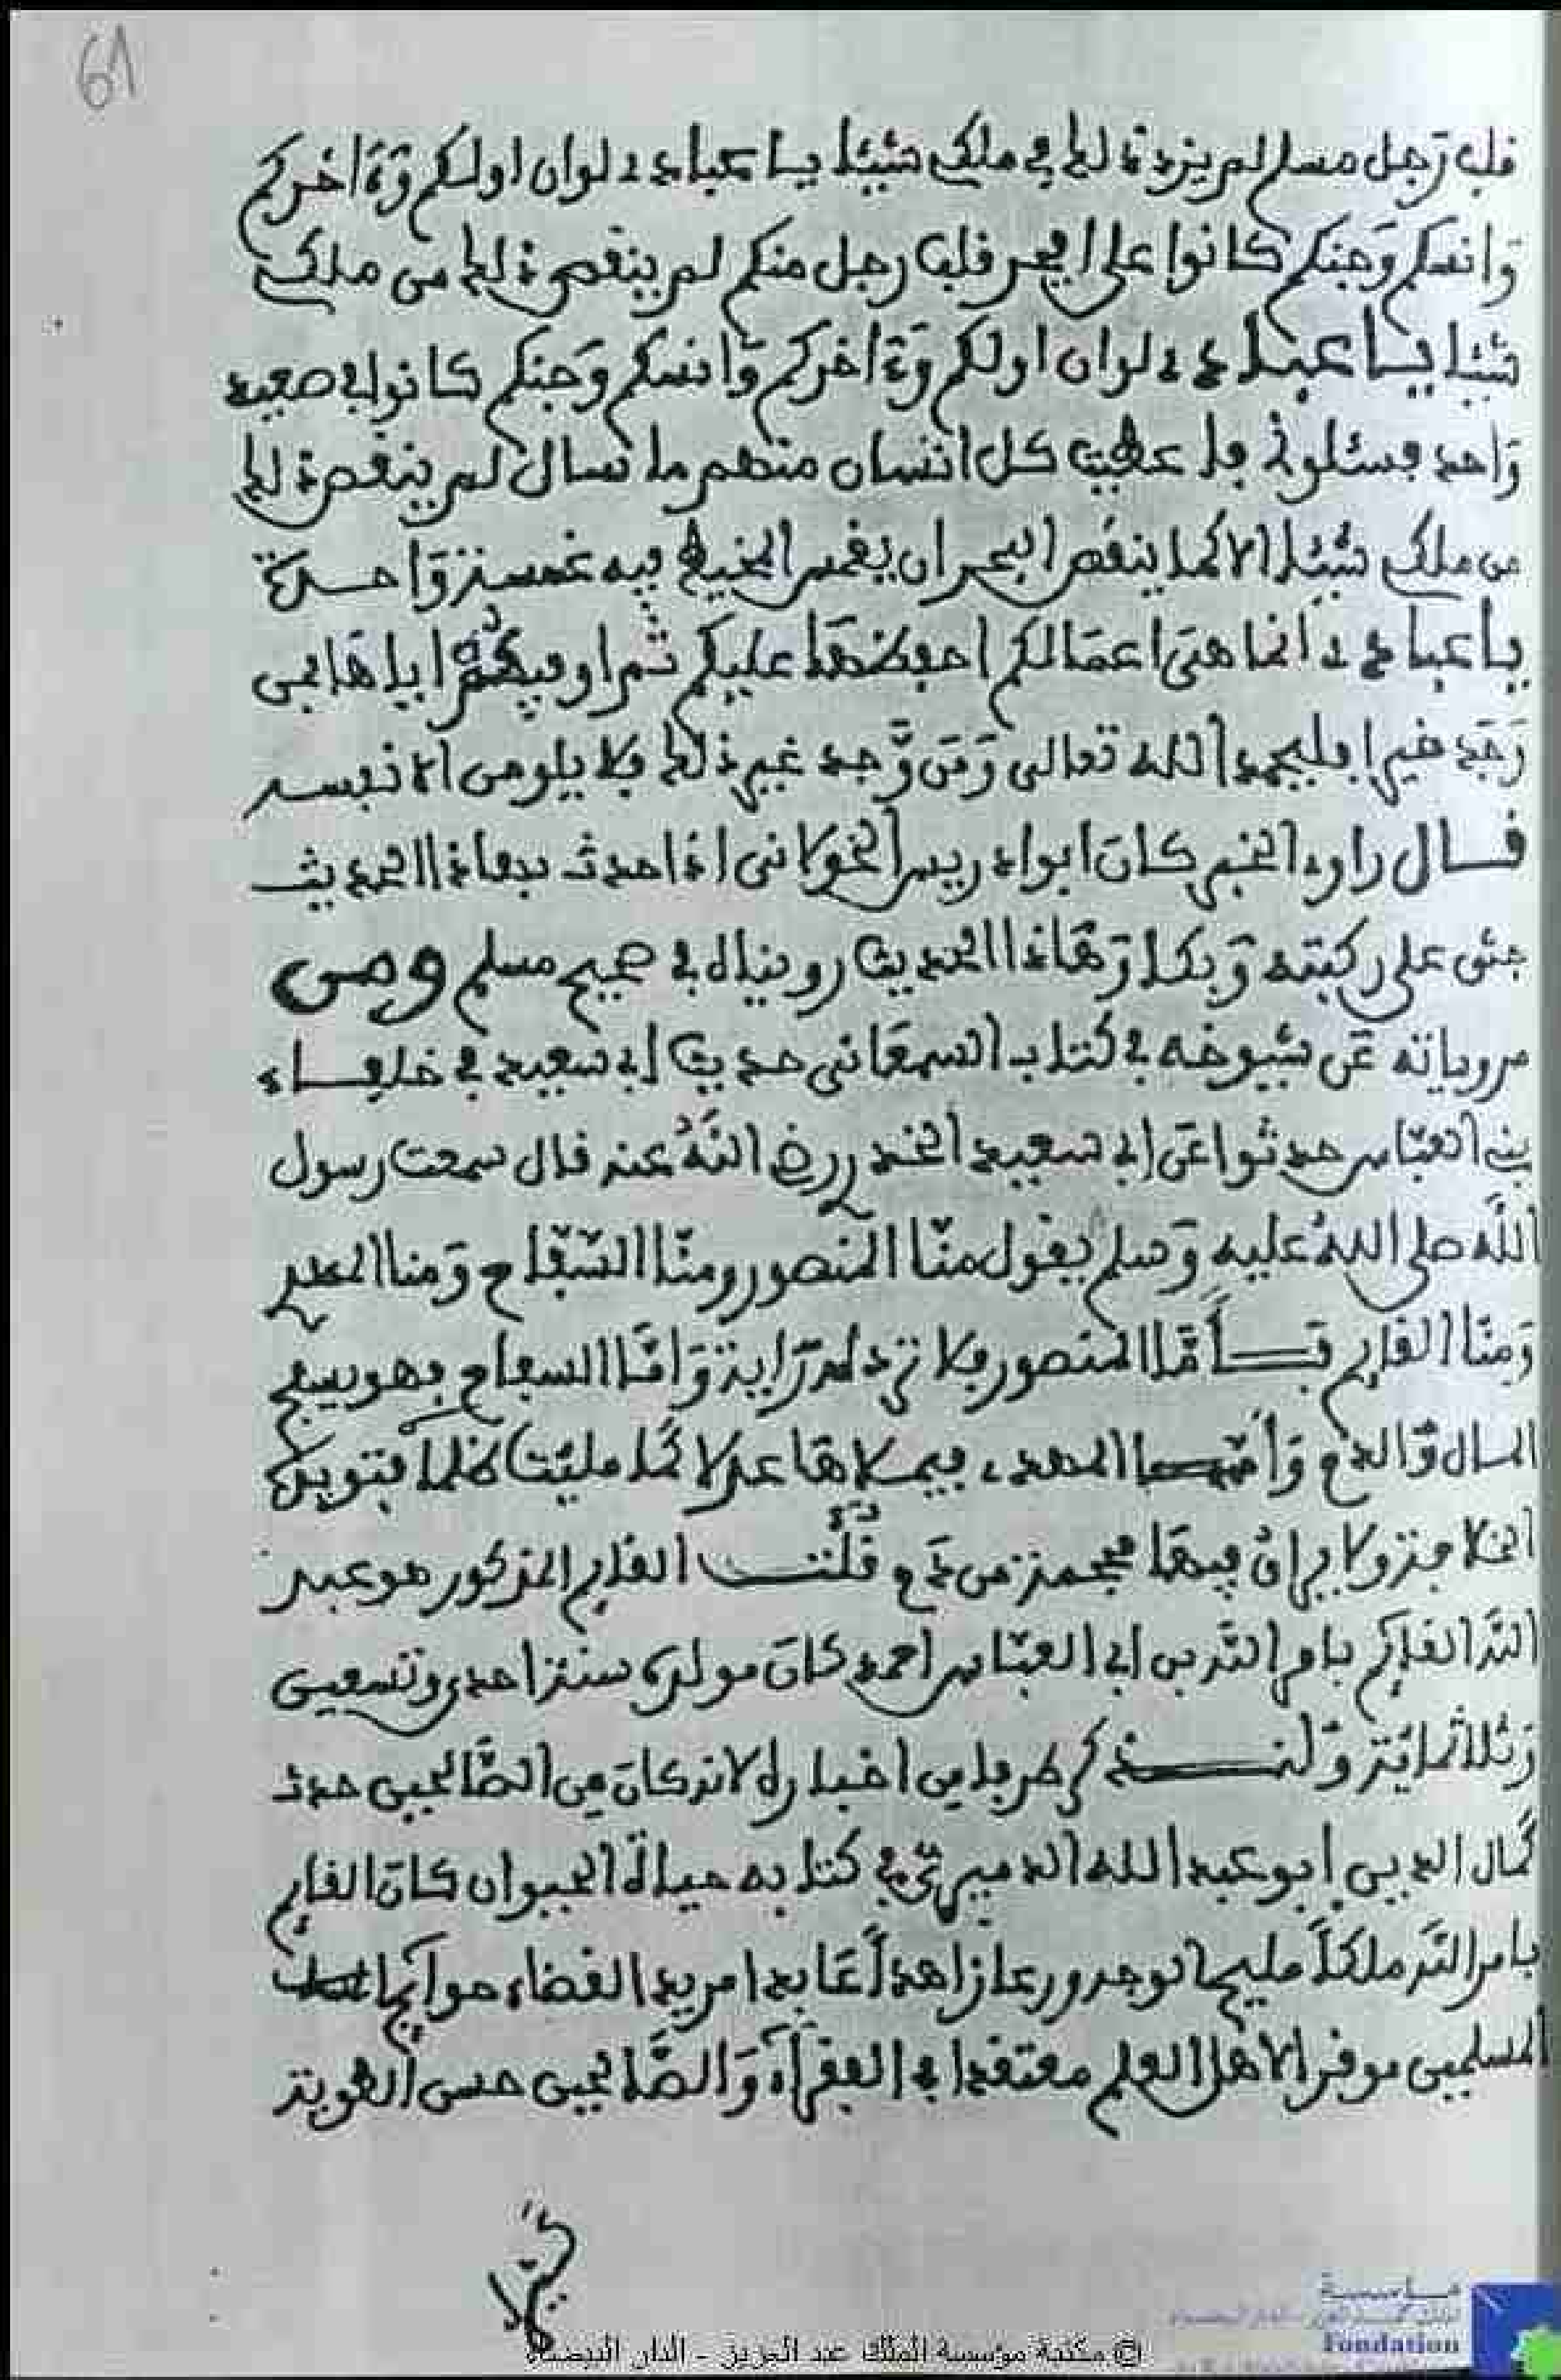 61
قلب رجل مسلم لم يزد ذالك في ملكي شيئا يا عبادي لو ان اولكم وءاخركم
وانسكم وجنكم كانوا على افجر قلب رجل منكم لم ينقص ذلك من ملكي
شيئا يا عبادي لو ان اولكم وءاخركم وانسكم وجنكم كانوا في صعيد
واحد فسئلوني فاعطيت كل انسان منهم ما سال لم ينقص ذلك
من ملكي شيئا الا كما ينقص البحر ان يغمس المخيط فيه غمسة واحدة
يا عبادي انما هي اعمالكم احفظها عليكم ثم اوفيكم اياها فمن
وجد خيرا فليحمد الله تعالى ومن وجد غير ذلك فلا يلومن الا نفسه
قال راوي الخبر كان ابو ادريس الخولاني اذا حدث بهاذا الحديث
جثى على ركبتيه وبكا وهاذا الحديث رويناه في صحيح مسلم ومن
مروياته عن شيوخه في كتاب السمعاني حديث ابي سعيد في خلفاء
بني العباس حدثوا عن ابي سعيد الخدري رضي الله عنه قال سمعت رسول
الله صلى الله عليه وسلم يقول منا المنصور ومنا السفاح ومنا المهدي
ومنا القايم فاما المنصور فلا ترد له راية واما السفاح فهو يسفح
المال والدم واما المهدي فيملاها عدلا كما مليت ظلما
الخلافة ولا يراق فيها محجمة من دم قلت القايم المذكور هو عبد
الله القايم بامر الله بن ابي العباس احمد كان مولده سنة احدى وتسعين
وثلاثماية ولنذكر طرفا من اخباره لانه كان من الصالحين حدث
كمال الدين ابو عبد الله الدميري في كتابه حياة الحيوان كان القايم
بامر الله ملكا مليح الوجه ورعا زاهدا عابدا مريدا لقضاء حوايج
المسلمين موقرا لاهل العلم معتقدا في الفقراء والصالحين حسن الطوية
كثير
© مكتبة مؤسسة الملك عبد العزيز - الدار البيضاء
مؤسسة
Fondation